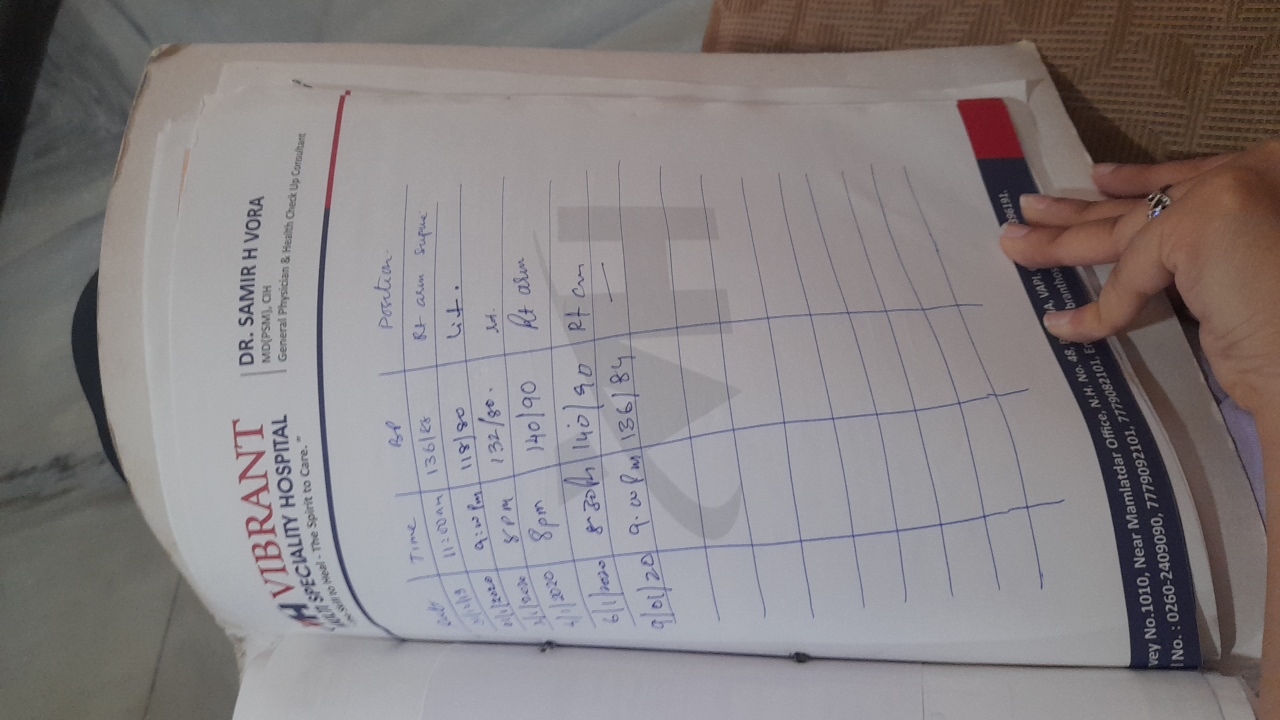 VH VIBRANT
MULTI SPECIALITY HOSPITAL
Skill to Heal - The Spirit to Care."
DR. SAMIR H VORA
MD(PSM), CIH
General Physician & Health Check Up Consultant
Date Time BP Position
11:00am 136/88 Rt arm
9:00 Pm 118/80
3/1/2020 8pm 132/80.
4/1/2020 8pm 140/90 Rt arm
6/1/2020 8:30Pm 140/90 Rt arm
9/01/20 9.00 Pm 136/84 —
VH
vey No.1010, Near Mamlatdar Office, N.H. No. 48, VAPI. 396191.
l No. : 0260-2409090, 7779092101, 7779082101, branthos